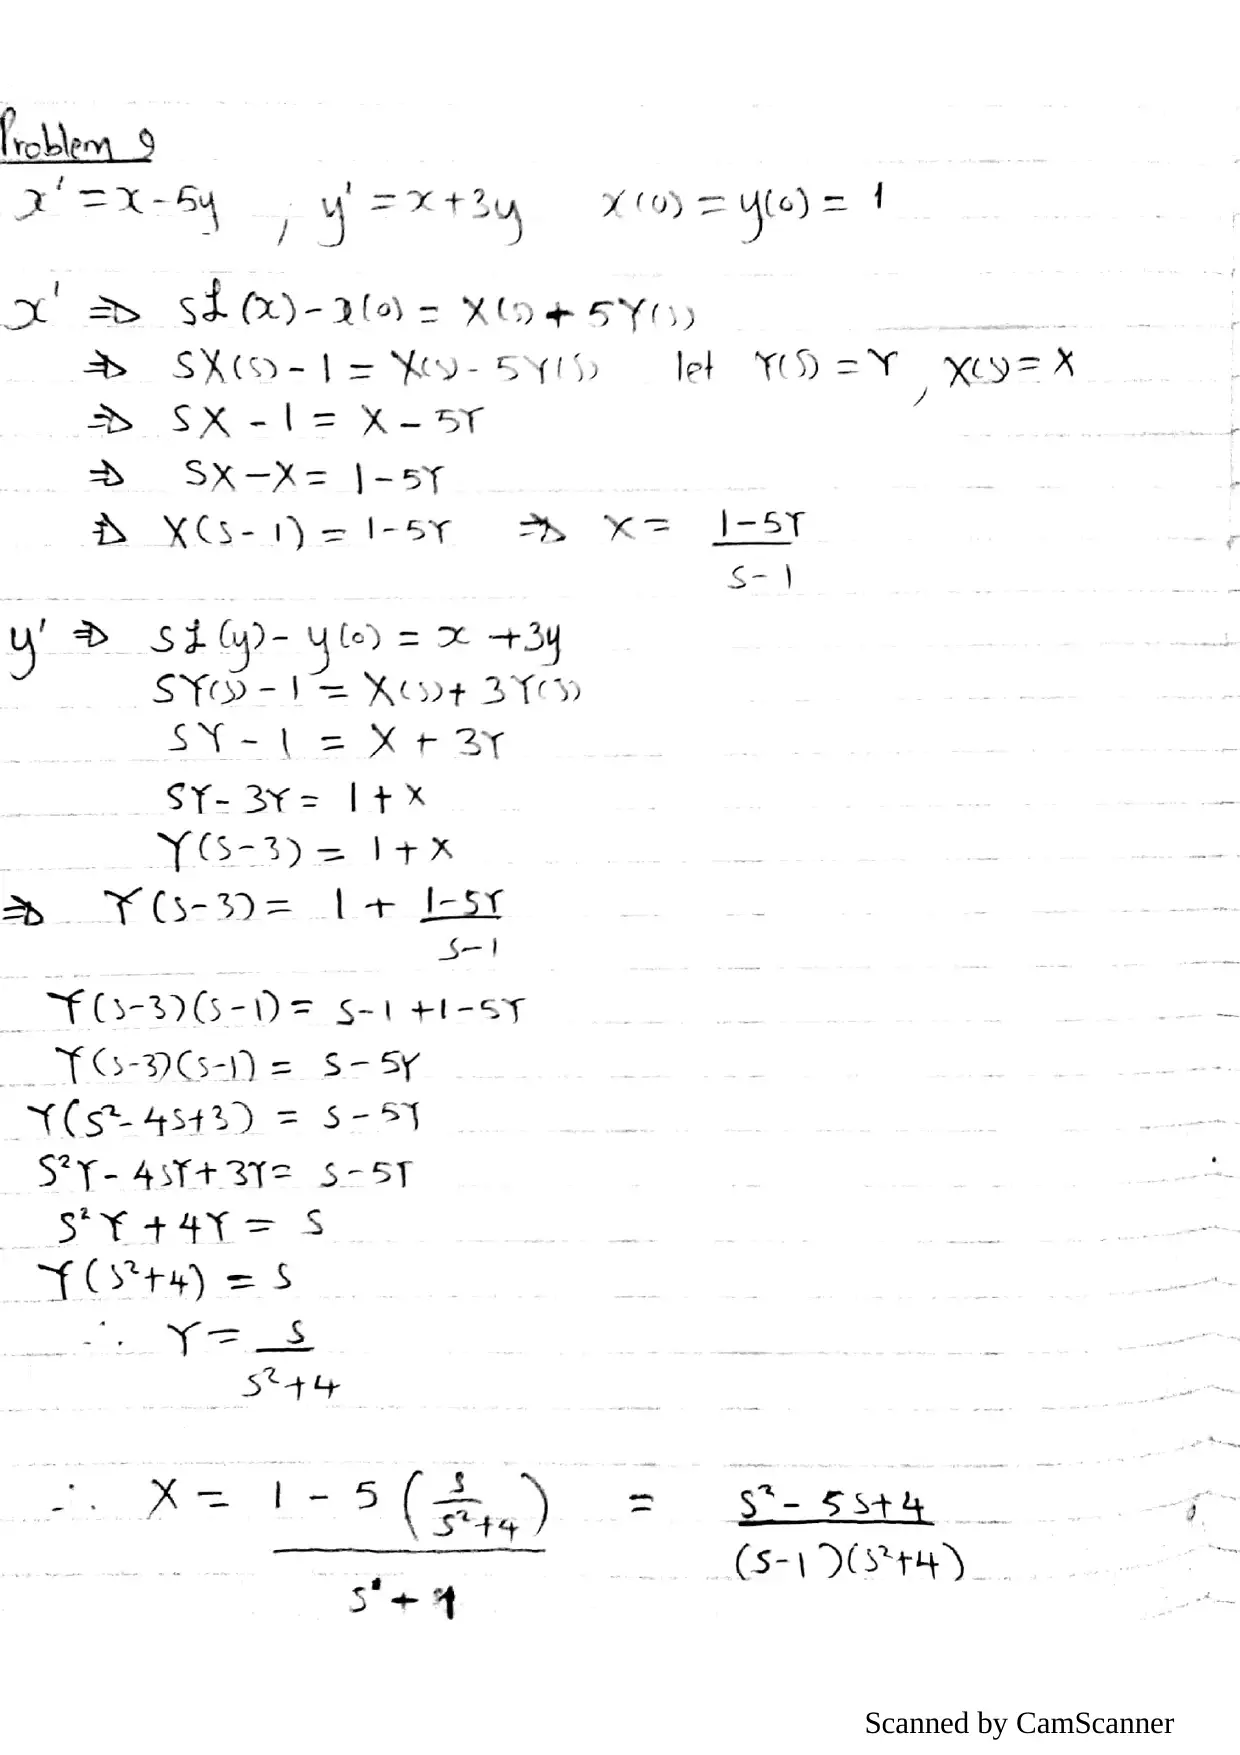 Problem 9
x' = x - 5y , y' = x + 3y x(0) = y(0) = 1
x' ⇒ sℒ(x) - x(0) = X(s) + 5Y(s)
⇒ SX(s) - 1 = X(s) - 5Y(s) let Y(s) = Y , X(s) = X
⇒ SX - 1 = X - 5Y
⇒ SX - X = 1 - 5Y
⇒ X(s - 1) = 1 - 5Y ⇒ X = 1-5Y
s-1
y' ⇒ sℒ(y) - y(0) = x + 3y
SY(s) - 1 = X(s) + 3Y(s)
SY - 1 = X + 3Y
SY - 3Y = 1 + X
Y(s-3) = 1 + X
⇒ Y(s-3) = 1 + 1-5Y
s-1
Y(s-3)(s-1) = s-1+1-5Y
Y(s-3)(s-1) = s - 5Y
Y(s²-4s+3) = s - 5Y
S²Y - 4sY + 3Y = s - 5Y
S²Y + 4Y = S
Y(s²+4) = s
∴ Y = s
s²+4
∴ X = 1 - 5 (s/s²+4) = s² - 5s+4
(s-1)(s²+4)
Scanned by CamScanner